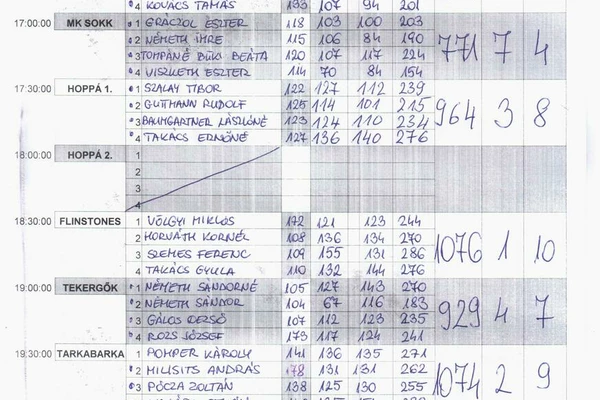 4 KOVÁCS TAMÁS 133 107 94 201
17:00:00 MK SOKK 1 GRÁCZOL ESZTER 118 103 100 203
2 NÉMETH IMRE 115 106 84 190 771 7 4
3 TOMPÁNÉ BÜKI BEÁTA 120 107 117 224
4 VISZKETH ESZTER 114 70 84 154
17:30:00 HOPPÁ 1. 1 SZALAY TIBOR 122 127 112 239
2 GUTHMANN RUDOLF 125 114 101 215 964 3 8
3 BAUMGARTNER LÁSZLÓNÉ 123 124 110 234
4 TAKÁCS ERNŐNÉ 127 136 140 276
18:00:00 HOPPÁ 2. 1
2
3
4
18:30:00 FLINSTONES 1 VÖLGYI MIKLÓS 172 121 123 244
2 HORVÁTH KORNÉL 108 136 134 270 1076 1 10
3 SZEMES FERENC 109 155 131 286
4 TAKÁCS GYULA 110 132 144 276
19:00:00 TEKERGŐK 1 NÉMETH SÁNDORNÉ 105 127 143 270
2 NÉMETH SÁNDOR 104 67 116 183 929 4 7
3 GÁLOS DEZSŐ 107 112 123 235
4 ROZS JÓZSEF 173 117 124 241
19:30:00 TARKABARKA 1 POMPER KÁROLY 141 136 135 271
2 MILISITS ANDRÁS 178 131 131 262 1074 2 9
3 PÓCZA ZOLTÁN 138 125 130 255